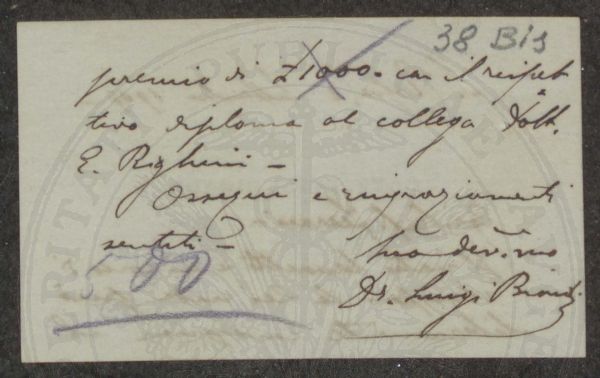 38 Bis
premio di £1000. con il rispet
tivo diploma al collega Dott.
E. Righini -
Ossequi e ringraziamenti
sentiti -
Suo dev.mo
500
Dr. Luigi